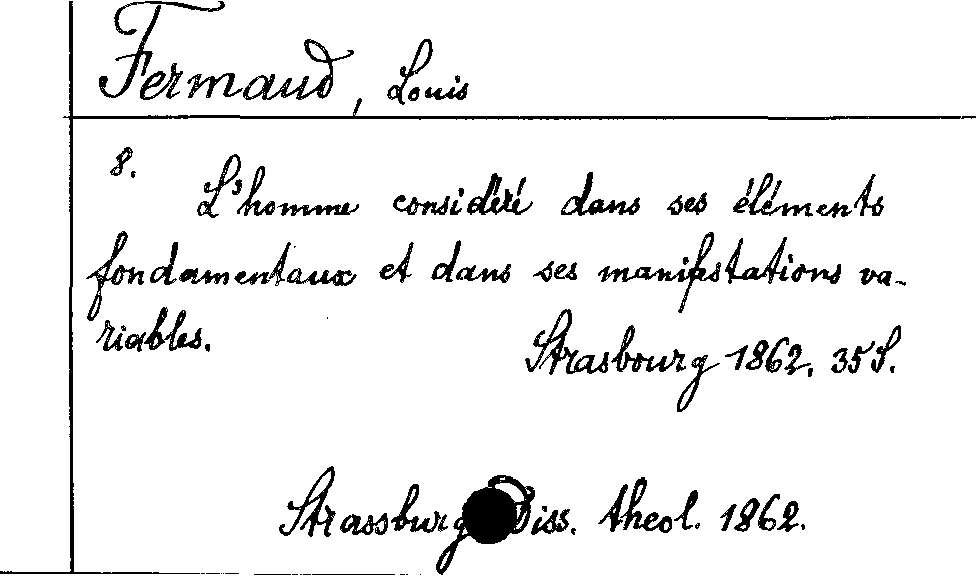 Fermaud, Louis
8.
L'homme considéré dans ses éléments
fondamentaux et dans ses manifestations va-
riables.
Strasbourg 1862. 35 S.
Strassburg Diss. theol. 1862.